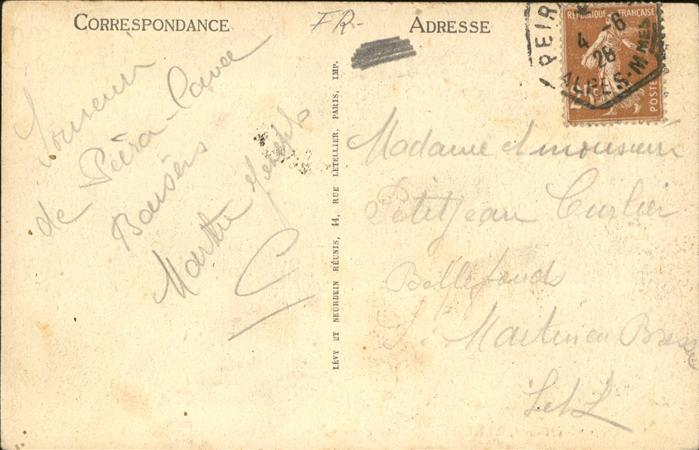 CORRESPONDANCE
FR.-
ADRESSE
Souvenir
de Peïra-Cava
Baisers
Marthe Joseph
LÉVY ET NEURDEIN RÉUNIS, 44, RUE LETELLIER, PARIS, IMP.
PEIR
4 - 8
26
ALPES-MMES
RÉPUBLIQUE FRANÇAISE
POSTES
Madame et monsieur
Petitjean Curlier
Bellefond
St Martin en Bresse
S et L